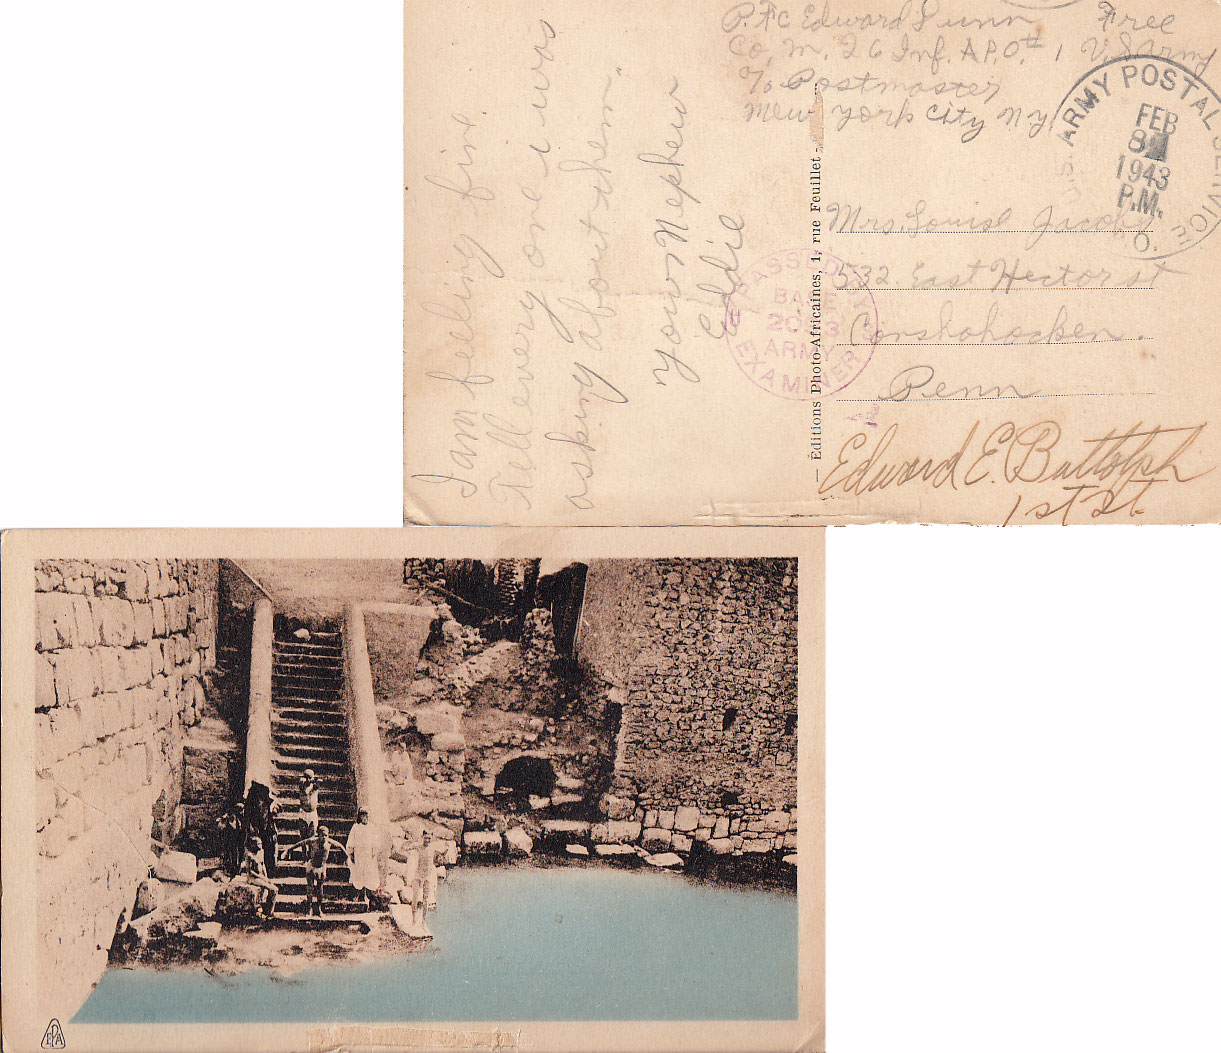 P.Fc Edward Dunn Free
Co, M, 26 Inf. A.P.O. # 1 U, S Army
% Postmaster
New York City N Y.
U.S. ARMY POSTAL SERVICE
FEB
8
1943
P.M.
A.P.O.
Mrs. Louise Jacoby
532 East Hector st
Conshohocken.
Penn
Edward E. Buttolph
1st Lt.
PASSED BY
BASE
ARMY
EXAMINER
— Éditions Photo-Africaines, 1, rue Feuillet -
I am feeling fine
Tell every one i was
asking about them.
Your Nephew
Eddie
EPA